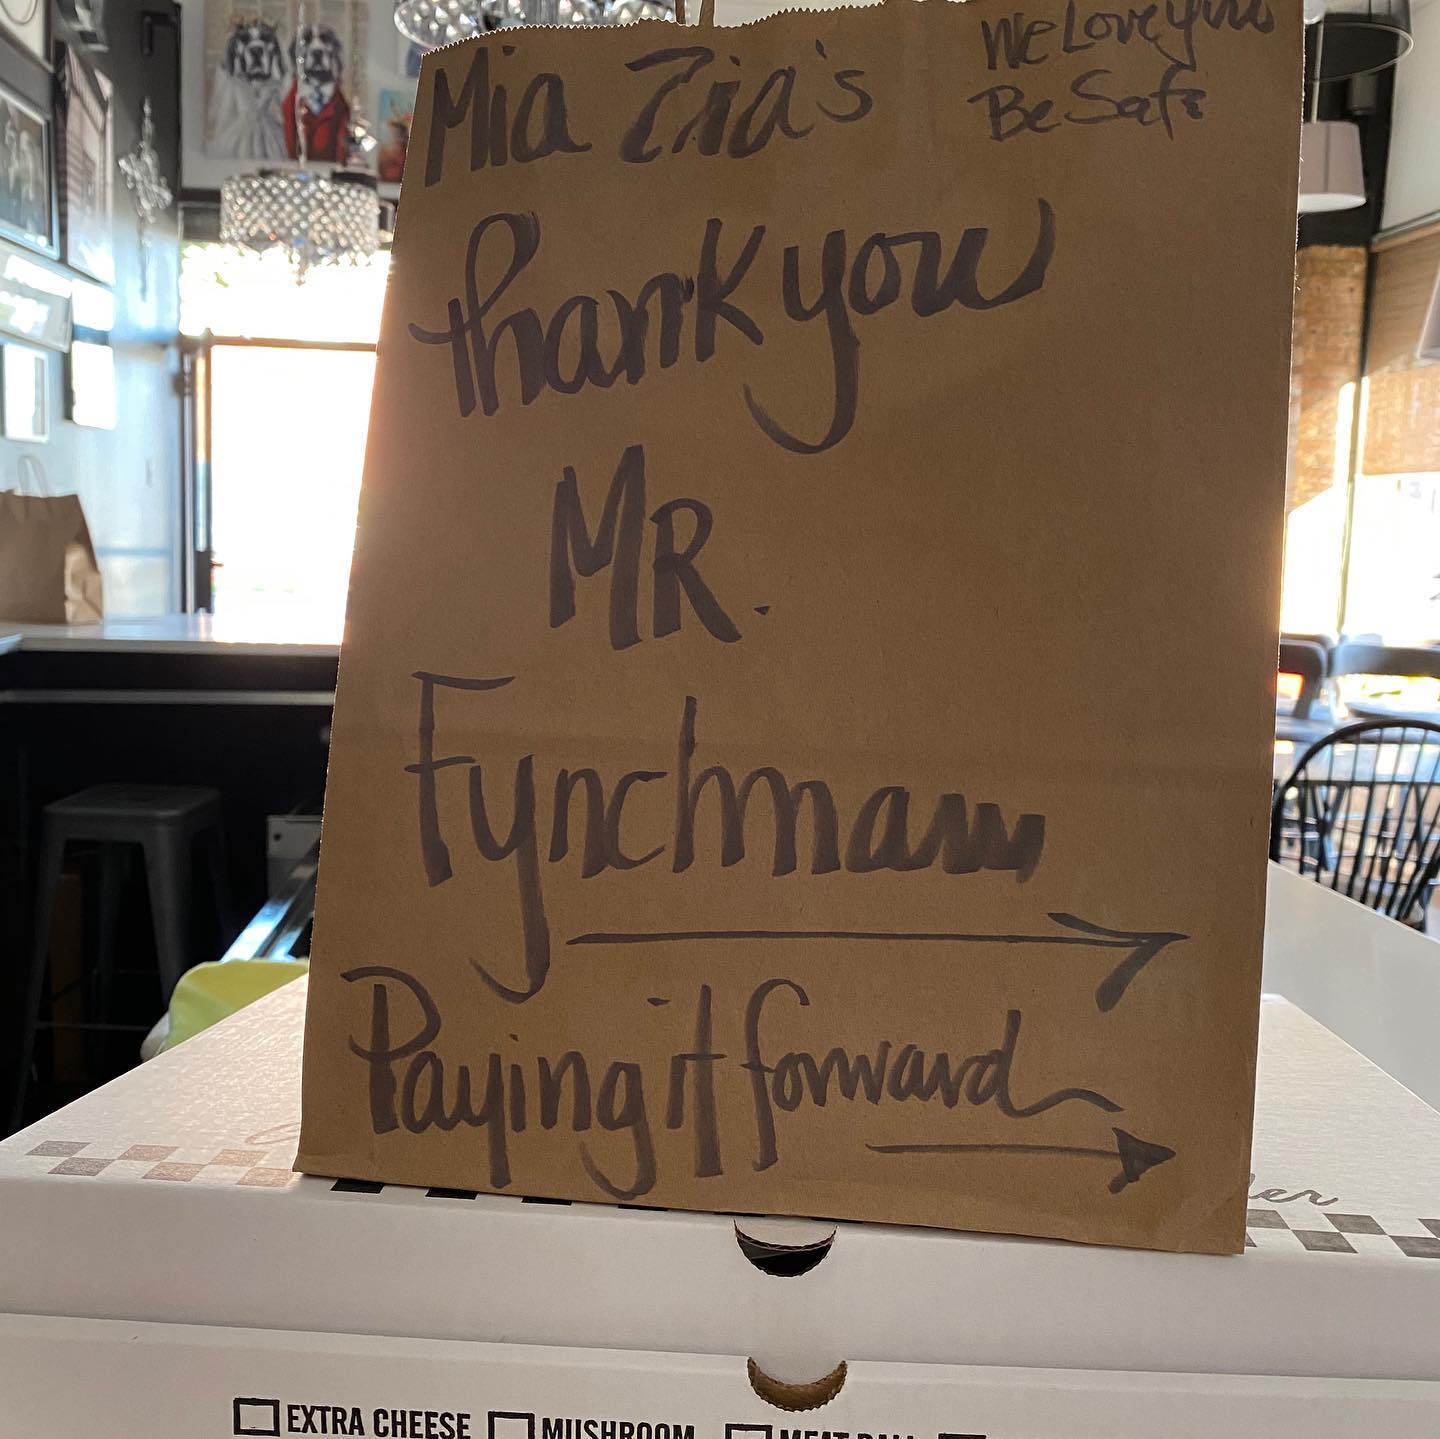 Mia Zia's
We Love you
Be Safe
Thank you
MR.
Fynchman
Paying it forward
EXTRA CHEESE MUSHROOM MEAT BALL